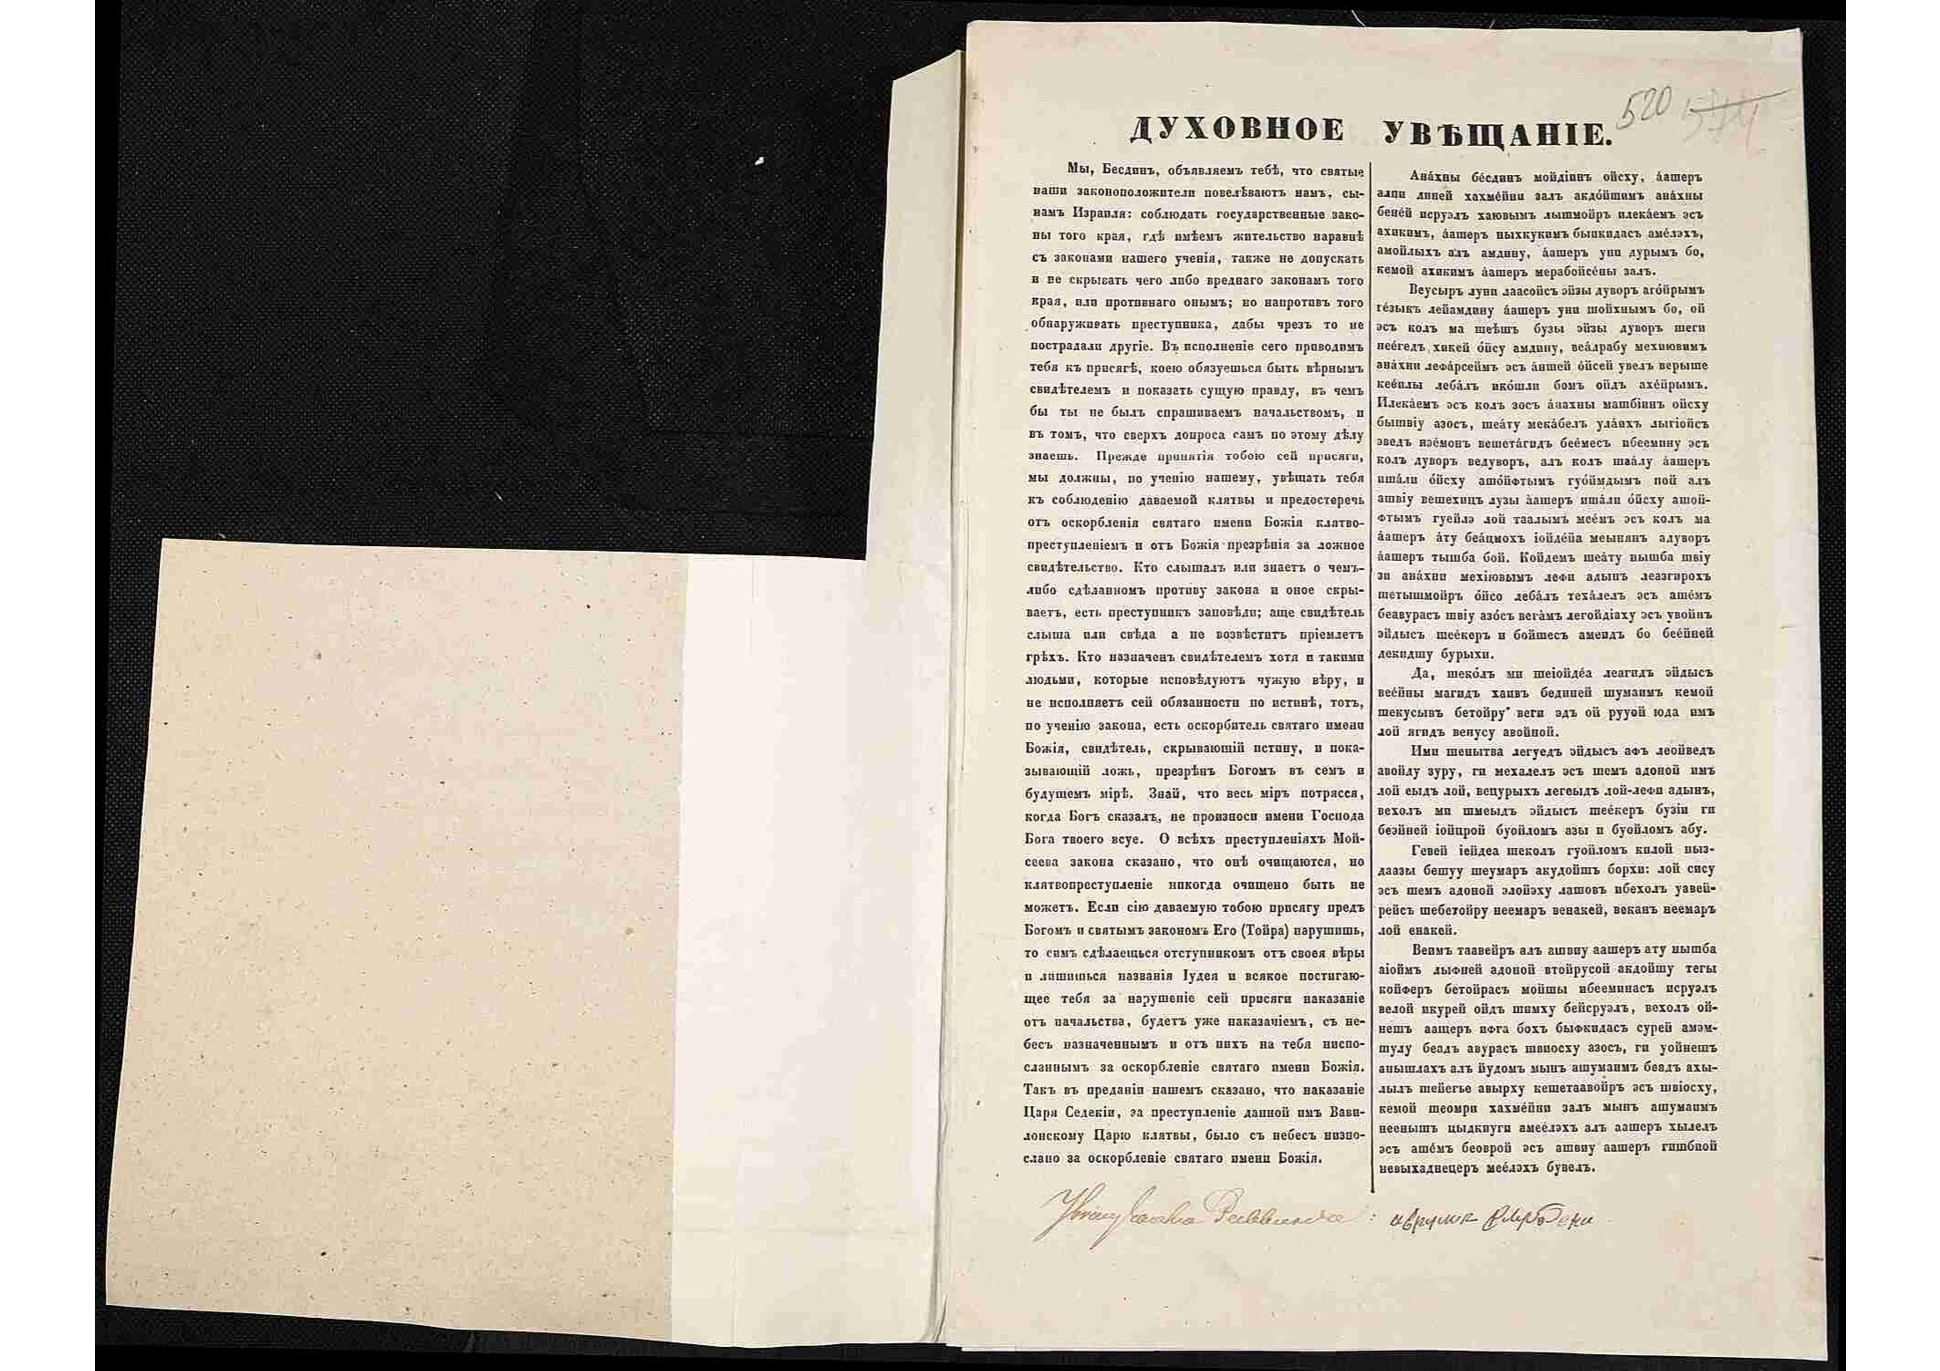 520
ДУХОВНОЕ УВѢЩАНІЕ.
Мы, Бесдинъ, объявляемъ тебѣ, что святые
наши законоположители повелѣваютъ намъ, сы-
намъ Израиля: соблюдать государственные зако-
ны того края, гдѣ имѣемъ жительство наравнѣ
съ законами нашего ученія, также не допускать
и не скрывать чего либо вреднаго законамъ того
края, или противнаго онымъ; но напротивъ того
обнаруживать преступника, дабы чрезъ то не
пострадали другіе. Въ исполненіе сего приводимъ
тебя къ присягѣ, коею обязуешься быть вѣрнымъ
свидѣтелемъ и показать сущую правду, въ чемъ
бы ты не былъ спрашиваемъ начальствомъ, и
въ томъ, что сверхъ допроса самъ по этому дѣлу
знаешь. Прежде принятія тобою сей присяги,
мы должны, по ученію нашему, увѣщать тебя
къ соблюденію даваемой клятвы и предостеречь
отъ оскорбленія святаго имени Божія клятво-
преступленіемъ и отъ Божія презрѣнія за ложное
свидѣтельство. Кто слышалъ или знаетъ о чемъ-
либо сдѣланномъ противу закона и оное скры-
ваетъ, есть преступникъ заповѣди; аще свидѣтель
слыша или свѣда а не возвѣститъ пріемлетъ
грѣхъ. Кто назначенъ свидѣтелемъ хотя и такими
людьми, которые исповѣдуютъ чужую вѣру, и
не исполняетъ сей обязанности по истинѣ, тотъ,
по ученію закона, есть оскорбитель святаго имени
Божія, свидѣтель, скрывающій истину, и пока-
зывающій ложь, презрѣнъ Богомъ въ семъ и
будущемъ мірѣ. Знай, что весь міръ потрясся,
когда Богъ сказалъ, не произноси имени Господа
Бога твоего всуе. О всѣхъ преступленіяхъ Мой-
сеева закона сказано, что онѣ очищаются, но
клятвопреступленіе никогда очищено быть не
можетъ. Если сію даваемую тобою присягу предъ
Богомъ и святымъ закономъ Его (Тойра) нарушишь,
то симъ сдѣлаешься отступникомъ отъ своея вѣры
и лишишься названія Іудея и всякое постигаю-
щее тебя за нарушеніе сей присяги наказаніе
отъ начальства, будетъ уже наказаніемъ, съ не-
бесъ назначеннымъ и отъ нихъ на тебя ниспо-
сланнымъ за оскорбленіе святаго имени Божія.
Такъ въ преданіи нашемъ сказано, что наказаніе
Царя Седекіи, за преступленіе данной имъ Вави-
лонскому Царю клятвы, было съ небесъ низпо-
слано за оскорбленіе святаго имени Божія.
Ана́хны бе́сдинъ мойдіинъ ойсху, а́ашеръ
алпи линей хахме́йни залъ акдо́йшимъ ана́хны
бене́й исруэлъ хаювымъ лышмойръ илека́емъ эсъ
ахикимъ, а́ашеръ ныхкукимъ быпкидасъ аме́лэхъ,
амойлыхъ алъ амдину, а́ашеръ уни дурымъ бо,
кемой ахикимъ а́ашеръ мерабойсе́ны залъ.
Веусыръ луни лаасойсъ эйзы дуворъ аго́йрымъ
ге́зыкъ лейамдину а́ашеръ уни шойхнымъ бо, ой
эсъ колъ ма шеѣшъ бузы эйзы дуворъ шеги
нее́гедъ хикей о́йсу амдину, веа́драбу мехиювимъ
ана́хни лефа́рсеймъ эсъ а́ншей о́йсей увелъ верыше
кее́илы леба́лъ ико́шли бомъ ойдъ ахе́йрымъ.
Илека́емъ эсъ колъ зосъ а́нахны машбіинъ ойсху
бытвіу азосъ, шеа́ту мека́белъ ула́ихъ лыгіойсъ
эведъ нэе́монъ вешета́гидъ бее́месъ ибеемину эсъ
колъ дуворъ ведуворъ, алъ колъ шаа́лу а́ашеръ
иша́ли о́йсху ашо́йфтымъ гуо́ймдымъ пой алъ
ашвіу вешехицъ лузы а́ашеръ иша́ли о́йсху ашой-
фтымъ гуейлэ лой таалымъ мее́мъ эсъ колъ ма
а́ашеръ а́ту беа́цмохъ іойде́йа меынянъ адуворъ
а́ашеръ тышба бой. Койдемъ шеа́ту нышба швіу
зи ана́хни мехіювымъ лефи адынъ леазгирохъ
шетышмойръ о́йсо леба́лъ теха́лелъ эсъ аше́мъ
беавурасъ швіу азо́съ вега́мъ легойдіаху эсъ увойнъ
эйдысъ шее́керъ и бойшесъ амеидъ бо бее́йней
декидшу бурыхи.
Да, шеко́лъ ми шеіойде́а леагидъ эйдысъ
вее́йны магидъ хаивъ бединей шумаимъ кемой
шекусывъ бетойру веги эдъ ой рууой юда имъ
лой ягидъ венусу авойной.
Ими шенытва легуедъ эйдысъ афъ леойведъ
авойду зуру, ги мехалелъ эсъ шемъ адоной имъ
лой еыдъ лой, вецурыхъ легеыдъ лой-лефи адынъ,
вехолъ ми шмеыдъ эйдысъ шее́керъ бузіи ги
беэйней іойцрой буойломъ азы и буойломъ абу.
Гевей іейдеа шеколъ гуойломъ килой ныз-
даазы бешуу шеумаръ акудойшъ борхи: лой сису
эсъ шемъ адоной элойэху лашовъ ибехолъ уавей-
рейсъ шебетойру неемаръ венакей, веканъ неемаръ
лой енакей.
Веимъ таавейръ алъ ашвиу аашеръ ату нышба
аіоймъ лыфней адоной втойрусой акдойшу тегы
койферъ бетойрасъ мойшы ибееминасъ исруэлъ
велой икурей ойдъ шимху бейсруэлъ, вехолъ ой-
нешъ аащеръ ифга бохъ быфкидасъ сурей амэм-
шулу беадъ авурасъ швиосху азосъ, ги уойнешъ
анышлахъ алъ йудомъ мынъ ашумаимъ беадъ ахы-
лылъ шейегье авырху кешетаавойръ эсъ швіосху,
кемой шеомри хахме́йни залъ мынъ ашумаимъ
неенышъ цыдкиуги амее́лэхъ алъ аашеръ хылелъ
эсъ аше́мъ беоврой эсъ ашвиу аашеръ гишбиой
невыхаднецеръ мее́лэхъ бувелъ.